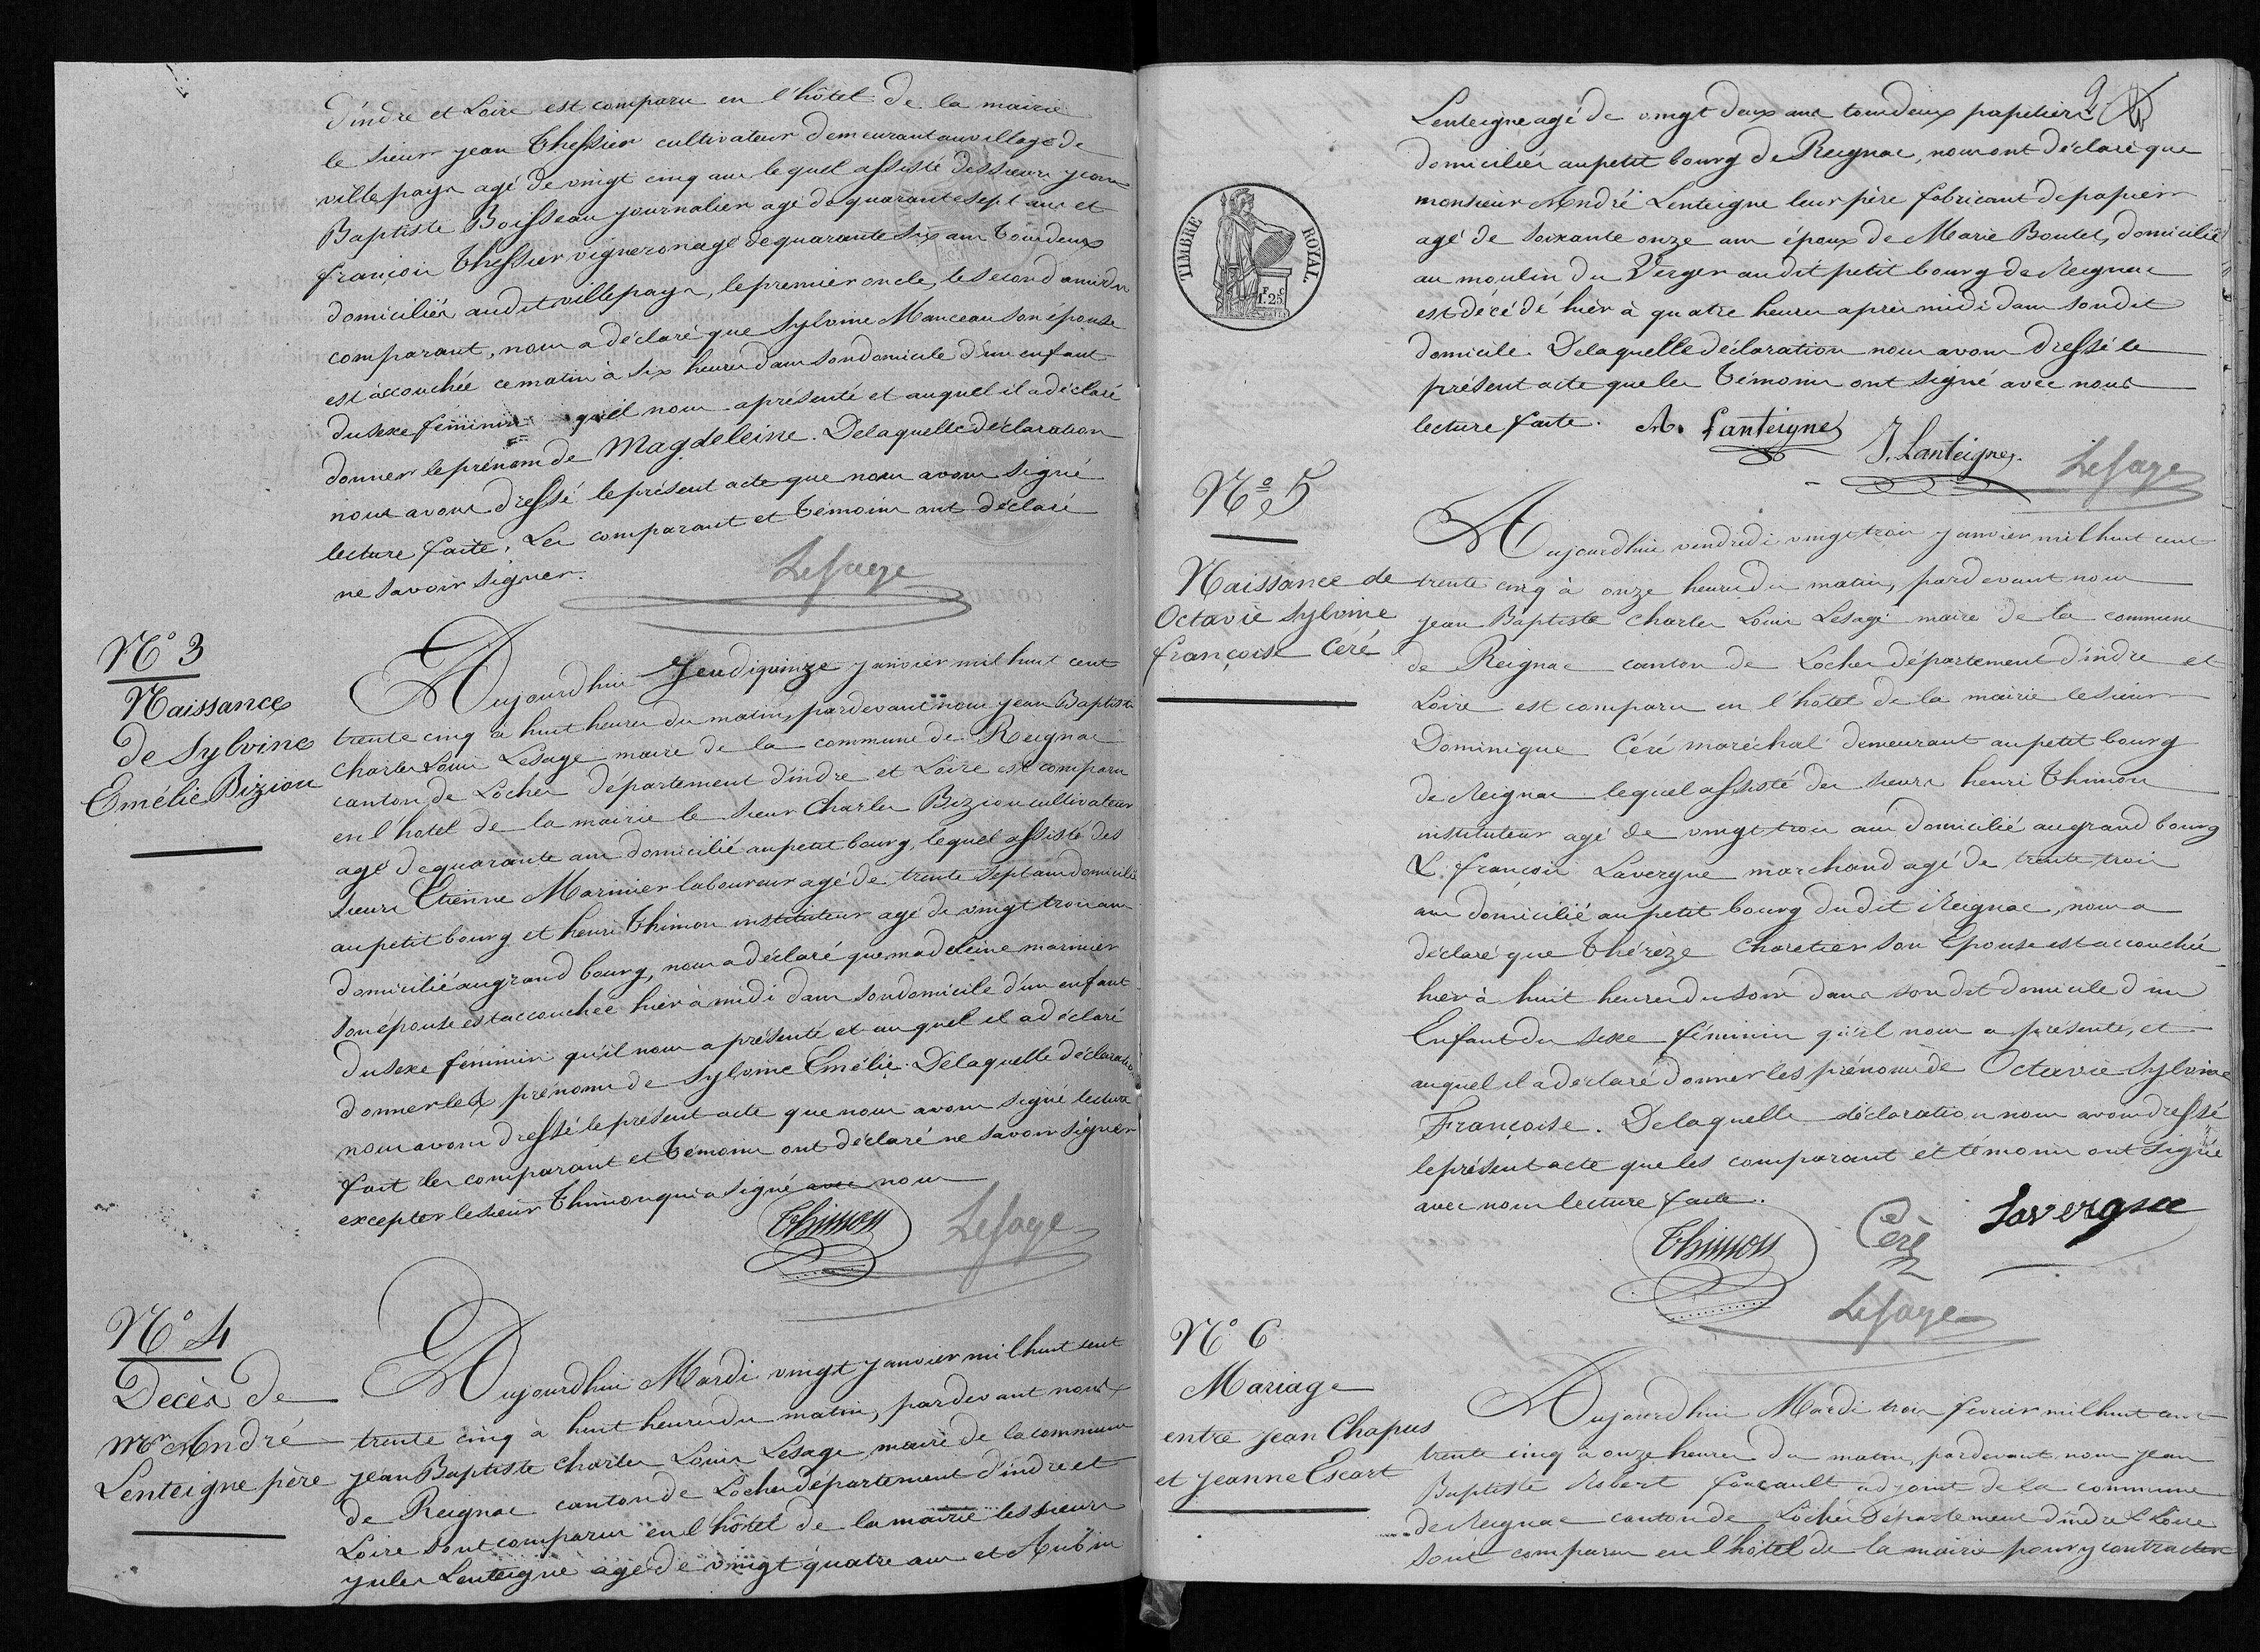 d'indre et Loire est comparu en l'hôtel de la mairie
le sieur jean Thessier cultivateur demeurant au village de
villepays agé de vingt cinq ans lequel assisté des sieurs jean
Baptiste Boisseau journalier agé de quarante sept ans et
françois Thessier vigneron agé de quarante six ans tous deux
domiciliés audit villepays, le premier oncle, le second ami du
comparant, nous a déclaré que Sylvine Manceau son épouse
est accouchée ce matin à six heures dans son domicile d'un enfant
du sexe féminin qu'il nous a présenté et auquel il a déclaré
donner le prénom de Magdeleine. De laquelle déclaration
nous avons dressé le présent acte que nous avons signé
lecture faite. Les comparant et témoins ont déclaré
ne savoir signer.
Lesage
N° 3
Naissance
de Sylvine
Emélie Bizion
Aujourdhui Jeudi quinze janvier mil huit cent
trente cinq à huit heures du matin, pardevant nous jean Baptiste
Charles Louis Lesage maire de la commune de Reignac
canton de Loches département d'indre et Loire est comparu
en l'hotel de la mairie le sieur Charles Bizion cultivateur
agé de quarante ans domicilié au petit bourg, lequel assisté des
sieurs Etienne Marinier laboureur agé de trente sept ans domicilié
au petit bourg et henri Thimon instituteur agé de vingt trois ans
domicilié au grand bourg, nous a déclaré que madeleine marinier
son épouse est accouchée hier à midi dans son domicile d'un enfant
du sexe féminin qu'il nous a présenté et auquel il a déclaré
donner les prénoms de Sylvine Emélie. De laquelle déclaration
nous avons dressé le présent acte que nous avons signé lecture
fait les comparant et témoins ont déclaré ne savoir signer
excepter le sieur Thimon qui a signé avec nous
Thimon Lesage
N° 4
Décès de
Mr André
Lenteigne père
Aujourdhui Mardi vingt janvier mil huit cent
trente cinq à huit heures du matin, pardevant nous
jean Baptiste Charles Louis Lesage, maire de la commune
de Reignac canton de Loches département d'indre et
Loire sont comparus en l'hôtel de la mairie les sieurs
jules Lenteigne agé de vingt quatre ans et Aubin
2
Lenteigne agé de vingt deux ans tous deux papetiers
domiciliés au petit bourg de Reignac, nous ont déclaré que
monsieur André Lenteigne leur père fabricant de papiers
agé de soixante onze ans époux de Marie Boutet, domicilié
au moulin du Verger audit petit bourg de Reignac
est décédé hier à quatre heures après midi dans son dit
domicile. De laquelle déclaration nous avons dressé le
présent acte que les témoins ont signé avec nous
lecture faite. A. Lanteigne
J. Lanteigne. Lesage
TIMBRE ROYAL
F. C.
1.25
N° 5
Naissance de
Octavie Sylvine
françoise Céré
Aujourdhui vendredi vingt trois janvier mil huit cent
trente cinq à onze heures du matin, pardevant nous
jean Baptiste Charles Louis Lesage maire de la commune
de Reignac canton de Loches département d'indre et
Loire est comparu en l'hôtel de la mairie le sieur
Dominique Céré maréchal demeurant au petit bourg
de Reignac lequel assisté des sieurs henri Thimon
instituteur agé de vingt trois ans domicilié au grand bourg
& françois Lavergne marchand agé de trente trois
ans domicilié au petit bourg dudit Reignac, nous a
déclaré que Thérèze Charetier son Epouse est accouchée
hier à huit heures du soir dans son dit domicile d'un
Enfant du sexe féminin qu'il nous a présenté, et
auquel il a déclaré donner les prénoms de Octavie Sylvine
Françoise. De laquelle déclaration nous avons dressé
le présent acte que les comparant et témoins ont signé
avec nous lecture faite.
Thimon Céré Lavergne
Lesage
N° 6
Mariage
entre jean Chapus
et jeanne Escart
Aujourdhui Mardi trois février mil huit cent
trente cinq à onze heures du matin, pardevant nous jean
Baptiste Robert foucault adjoint de la commune
de Reignac canton de Loches département d'indre & Loire
sont comparus en l'hôtel de la mairie pour y contracter